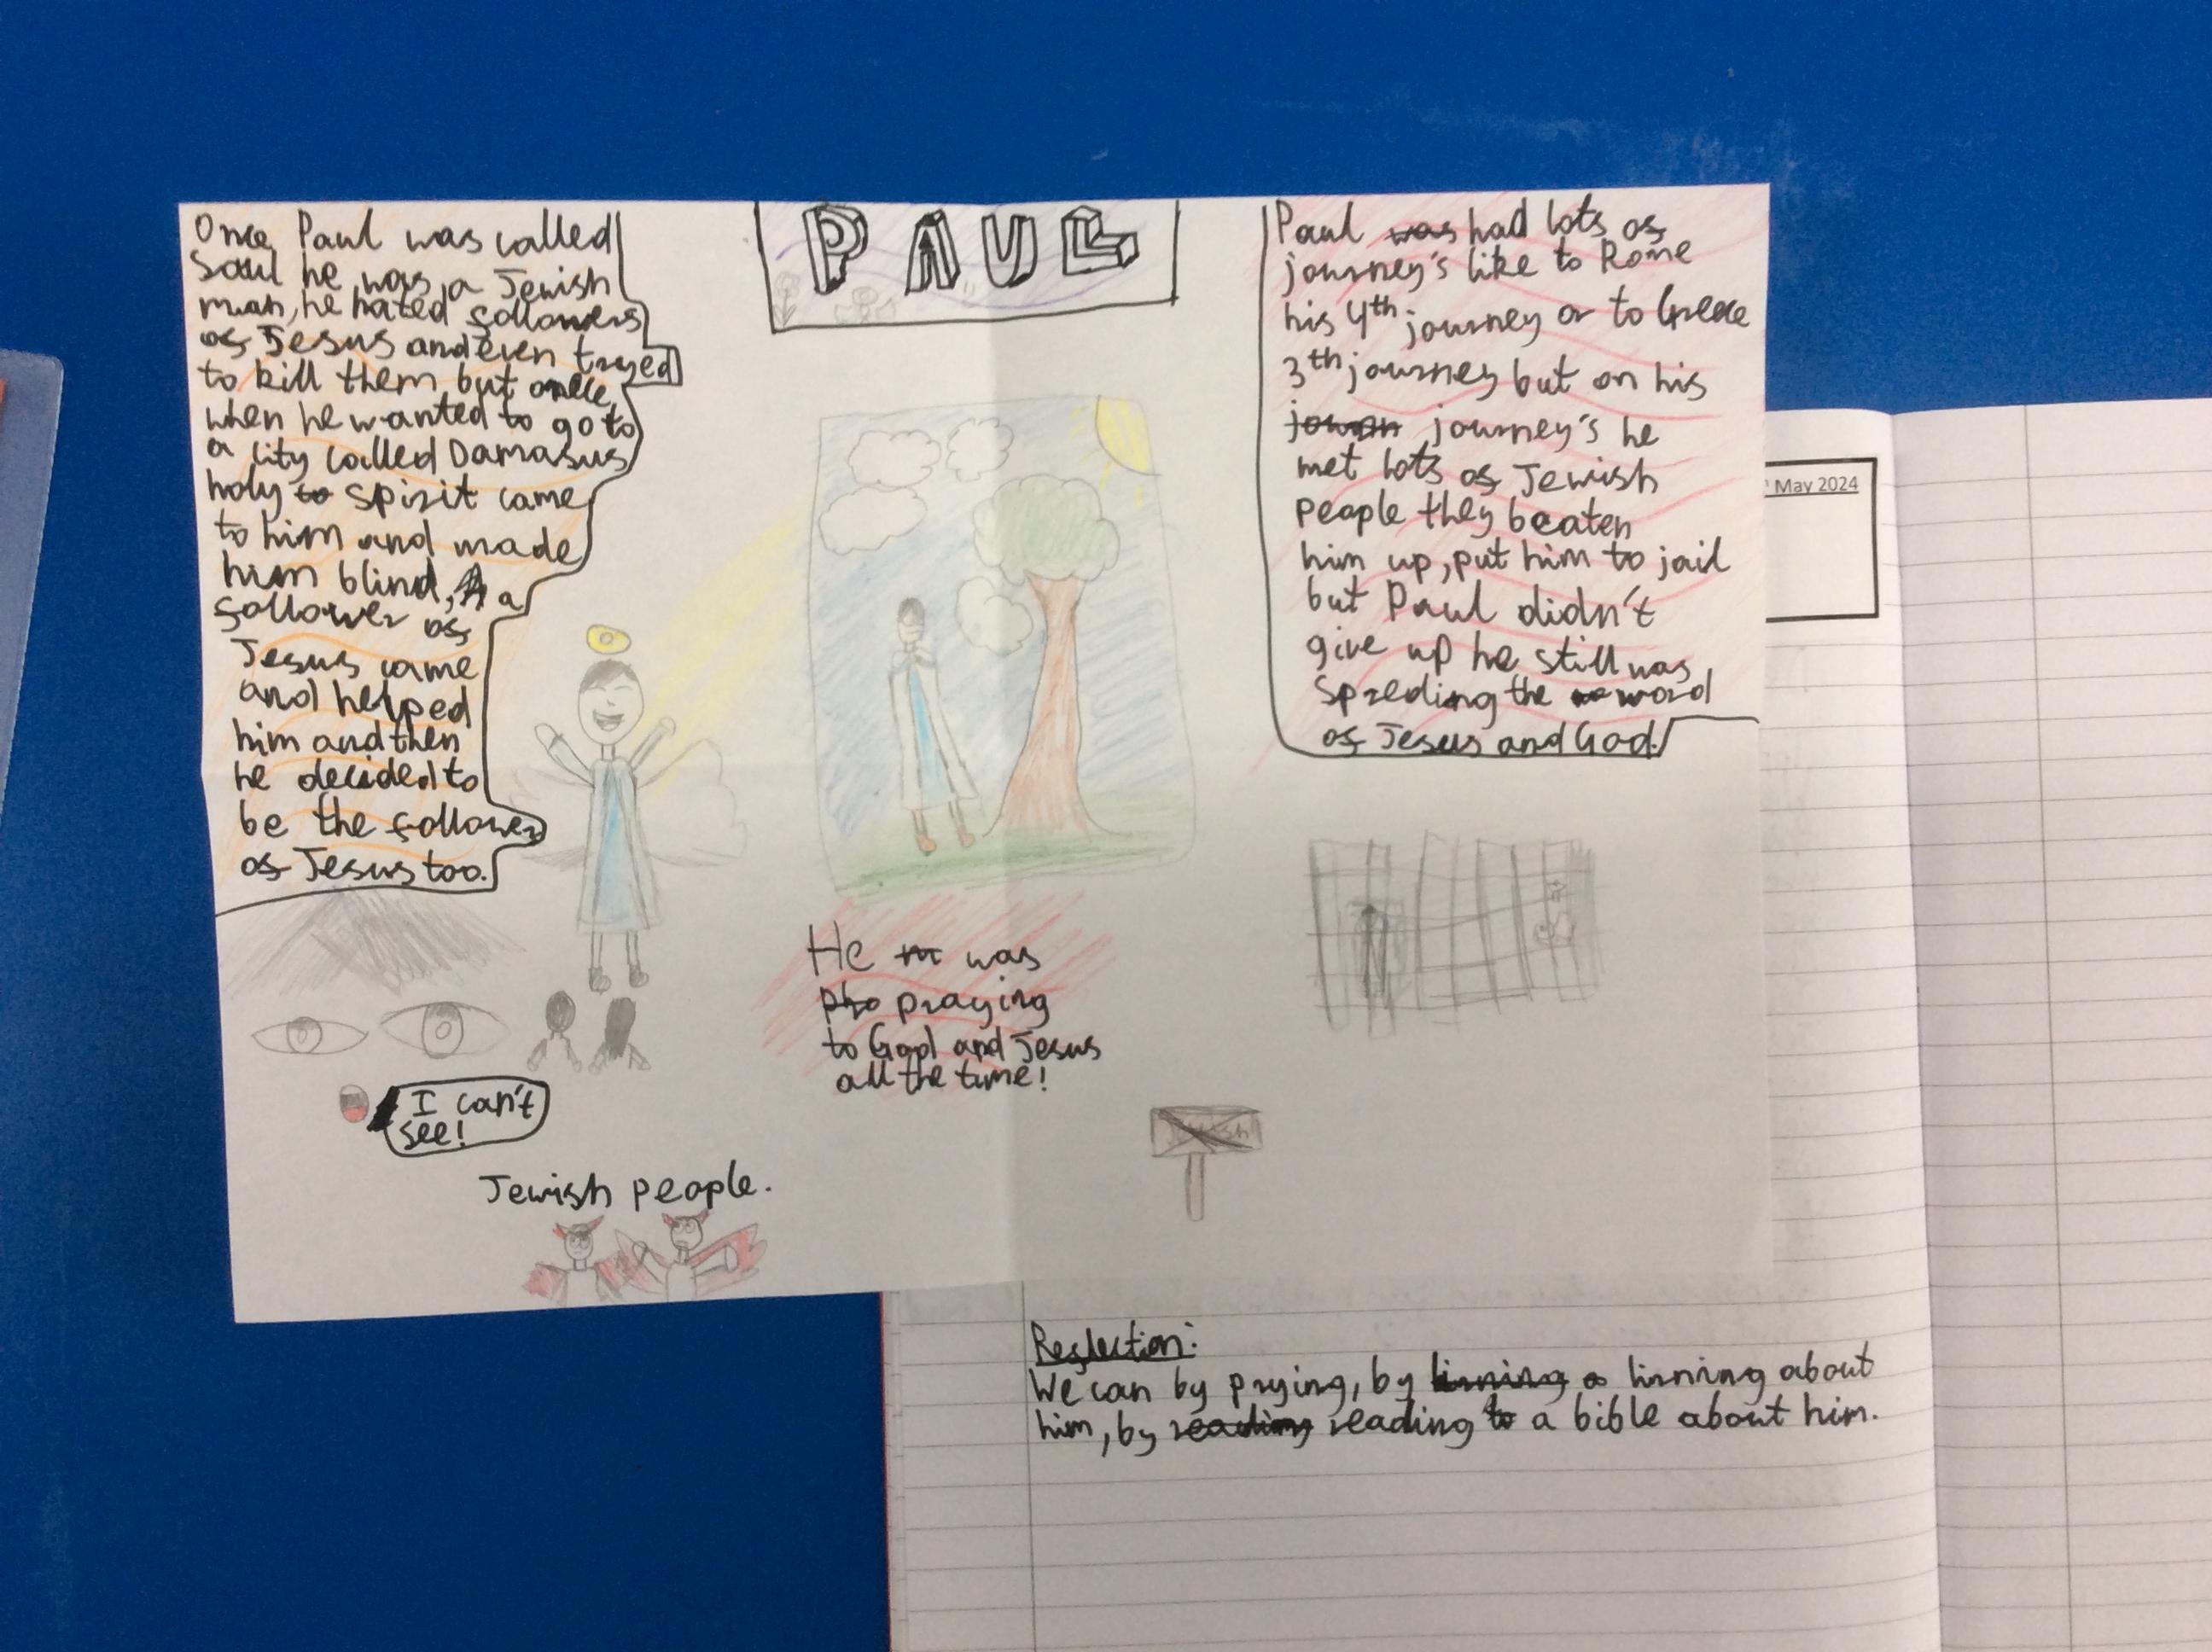 Once Paul was called
Saul he was a Jewish
man, he hated followers
of Jesus and even tryed
to kill them but once
when he wanted to go to
a city called Damasus
holy to spirit came
to him and made
him blind, A a
follower of
Jesus came
and helped
him and then
he decided to
be the follower
of Jesus too.
I can't
see!
Jewish people.
PAUL
He was
pho praying
to God and Jesus
all the time!
Paul was had lots of
journey's like to Rome
his 4th journey or to Greece
3th journey but on his
journ journey's he
met lots of Jewish
people they beaten
him up, put him to jail
but Paul didn't
give up he still was
spreding the word
of Jesus and God.
May 2024
Reflection:
We can by prying, by lirning a lirning about
him, by reading reading to a bible about him.